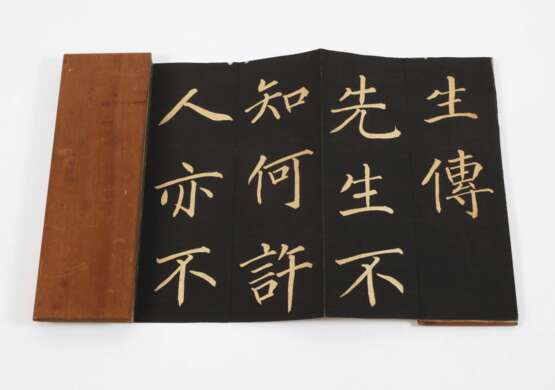 生傳
先生不
知何許
人亦不